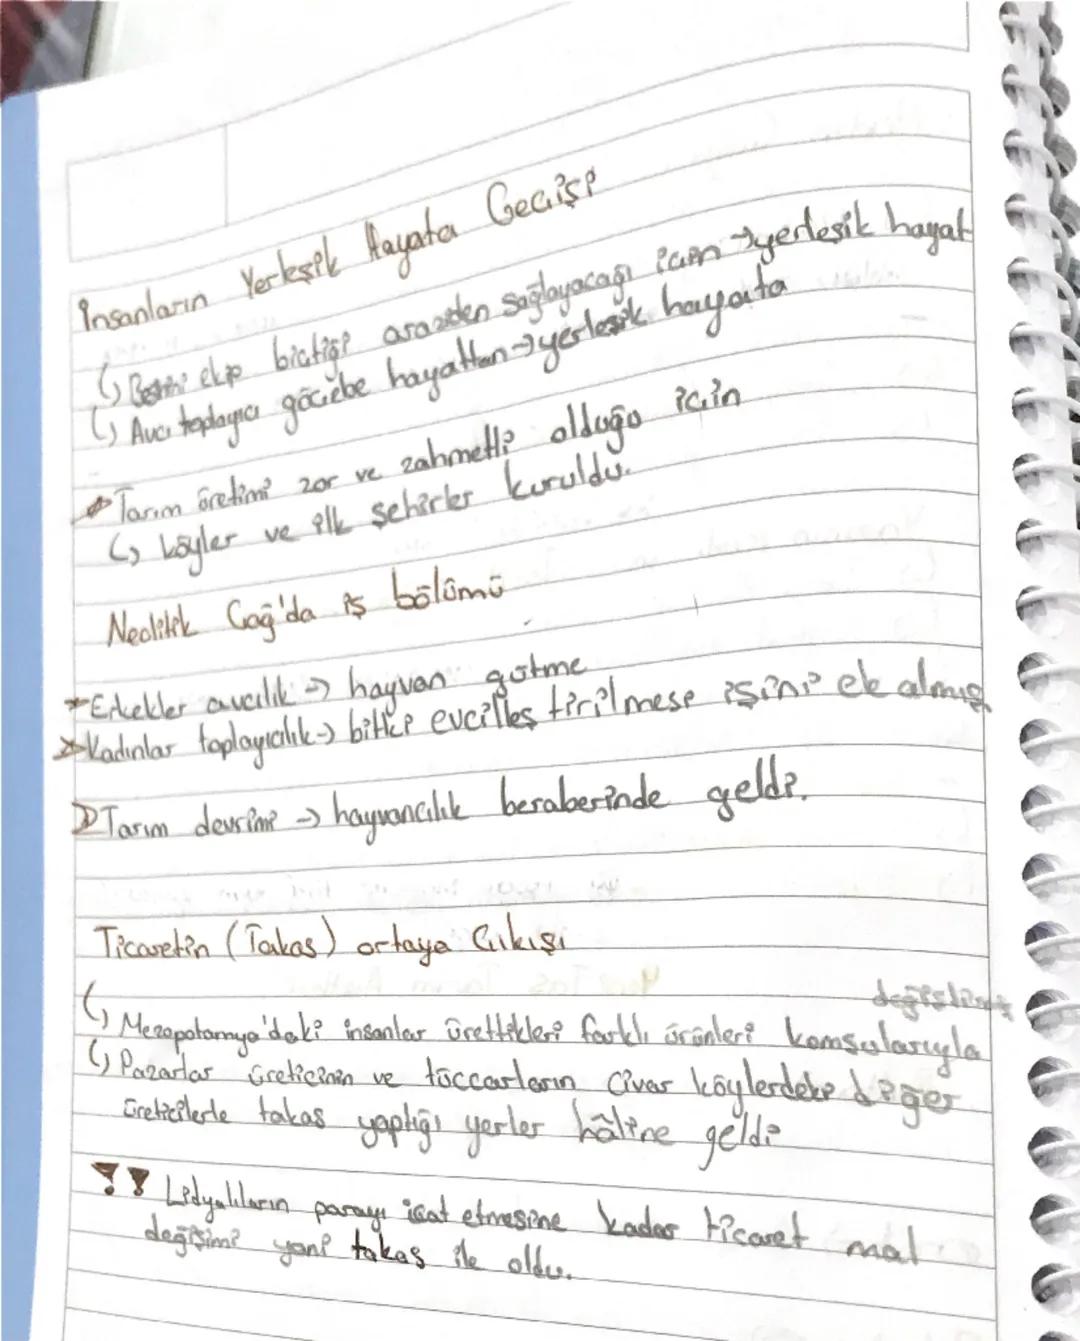 İnsanların Yerleşik Hayata Geçişi
↳ Besini ekip biçtiği araziden sağlayacağı için → yerleşik hayat
↳ Avcı toplayıcı göçebe hayattan → yerleşik hayata
Tarım üretimi zor ve zahmetli olduğu için
↳ köyler ve ilk şehirler kuruldu.
Neolitik Çağ'da iş bölümü
Erkekler avcılık → hayvan gütme
Kadınlar toplayıcılık → bitki evcilleştirilmesi işini ek almış
Tarım devrimi → hayvancılık beraberinde geldi.
Ticaretin (Takas) ortaya Çıkışı
değiştirmiş
↳ Mezopotamya'daki insanlar ürettikleri farklı ürünleri komşularıyla
↳ Pazarlar üreticinin ve tüccarların civar köylerdeki diğer
üreticilerle takas yaptığı yerler hâline geldi
!! Lidyalıların parayı icat etmesine kadar ticaret mal
değişimi yani takas ile oldu.